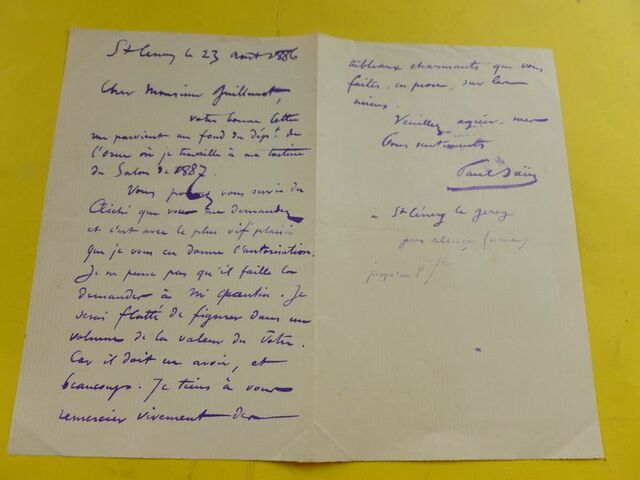 St Céneri le 23 août 1886
Cher Monsieur Guillemot,
votre bonne lettre
me parvient au fond du dépt. de
l'Orne où je travaille à ma tartine
du Salon de 1887.
Vous pouvez vous servir du
Cliché que vous me demandez
et c'est avec le plus vif plaisir
que je vous en donne l'autorisation.
Je ne pense pas qu'il faille la
demander à Mr Quantin. Je
serai flatté de figurer dans un
volume de la valeur du Vôtre.
Car il doit en avoir, et
beaucoup. Je tiens à vous
remercier vivement des
tableaux charmants que vous
faites, en prose, sur les
miens.
Veuillez agréer mes
bons sentiments
Paul Saïn
à St Cénery le gerey
près alençon (orne)
jusqu'au 8 7bre